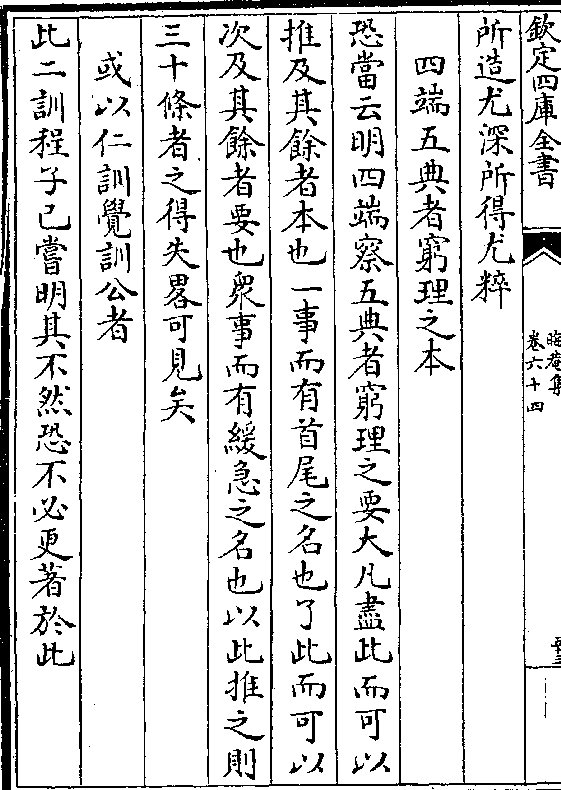 欽定四庫全書
晦菴集
卷六十四
所造尤深所得尤粹
四端五典者窮理之本
恐當云明四端察五典者窮理之要大凡盡此而可以
推及其餘者本也一事而有首尾之名也了此而可以
次及其餘者要也衆事而有緩急之名也以此推之則
三十條者之得失畧可見矣
或以仁訓覺訓公者
此二訓程子已嘗明其不然恐不必更著於此